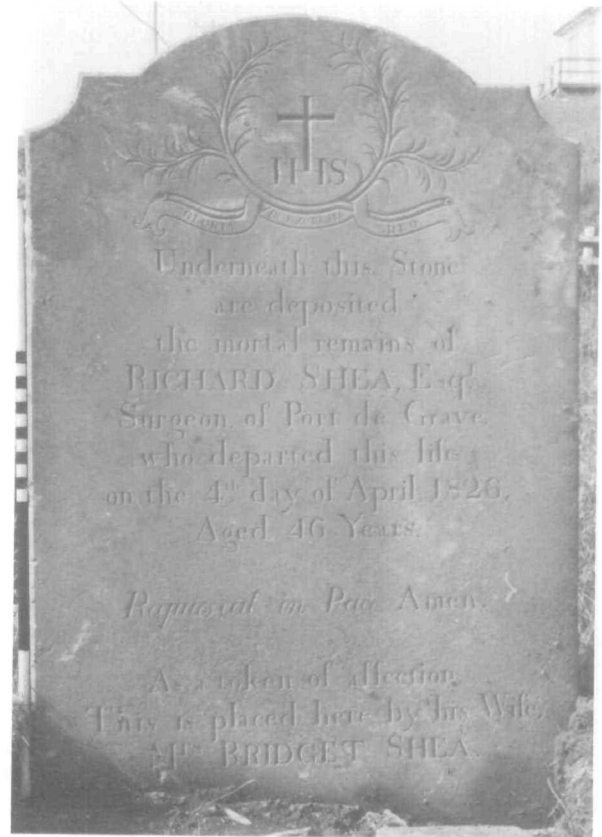 IHS
GLORIA IN EXCELSIS DEO
Underneath this Stone
are deposited
the mortal remains of
RICHARD SHEA, Esqr.
Surgeon, of Port de Grave,
who departed this life
on the 4th day of April, 1826,
Aged 46 Years.
Requiescat in Pace Amen.
As a token of affection
This is placed here by his Wife,
Mrs BRIDGET SHEA.